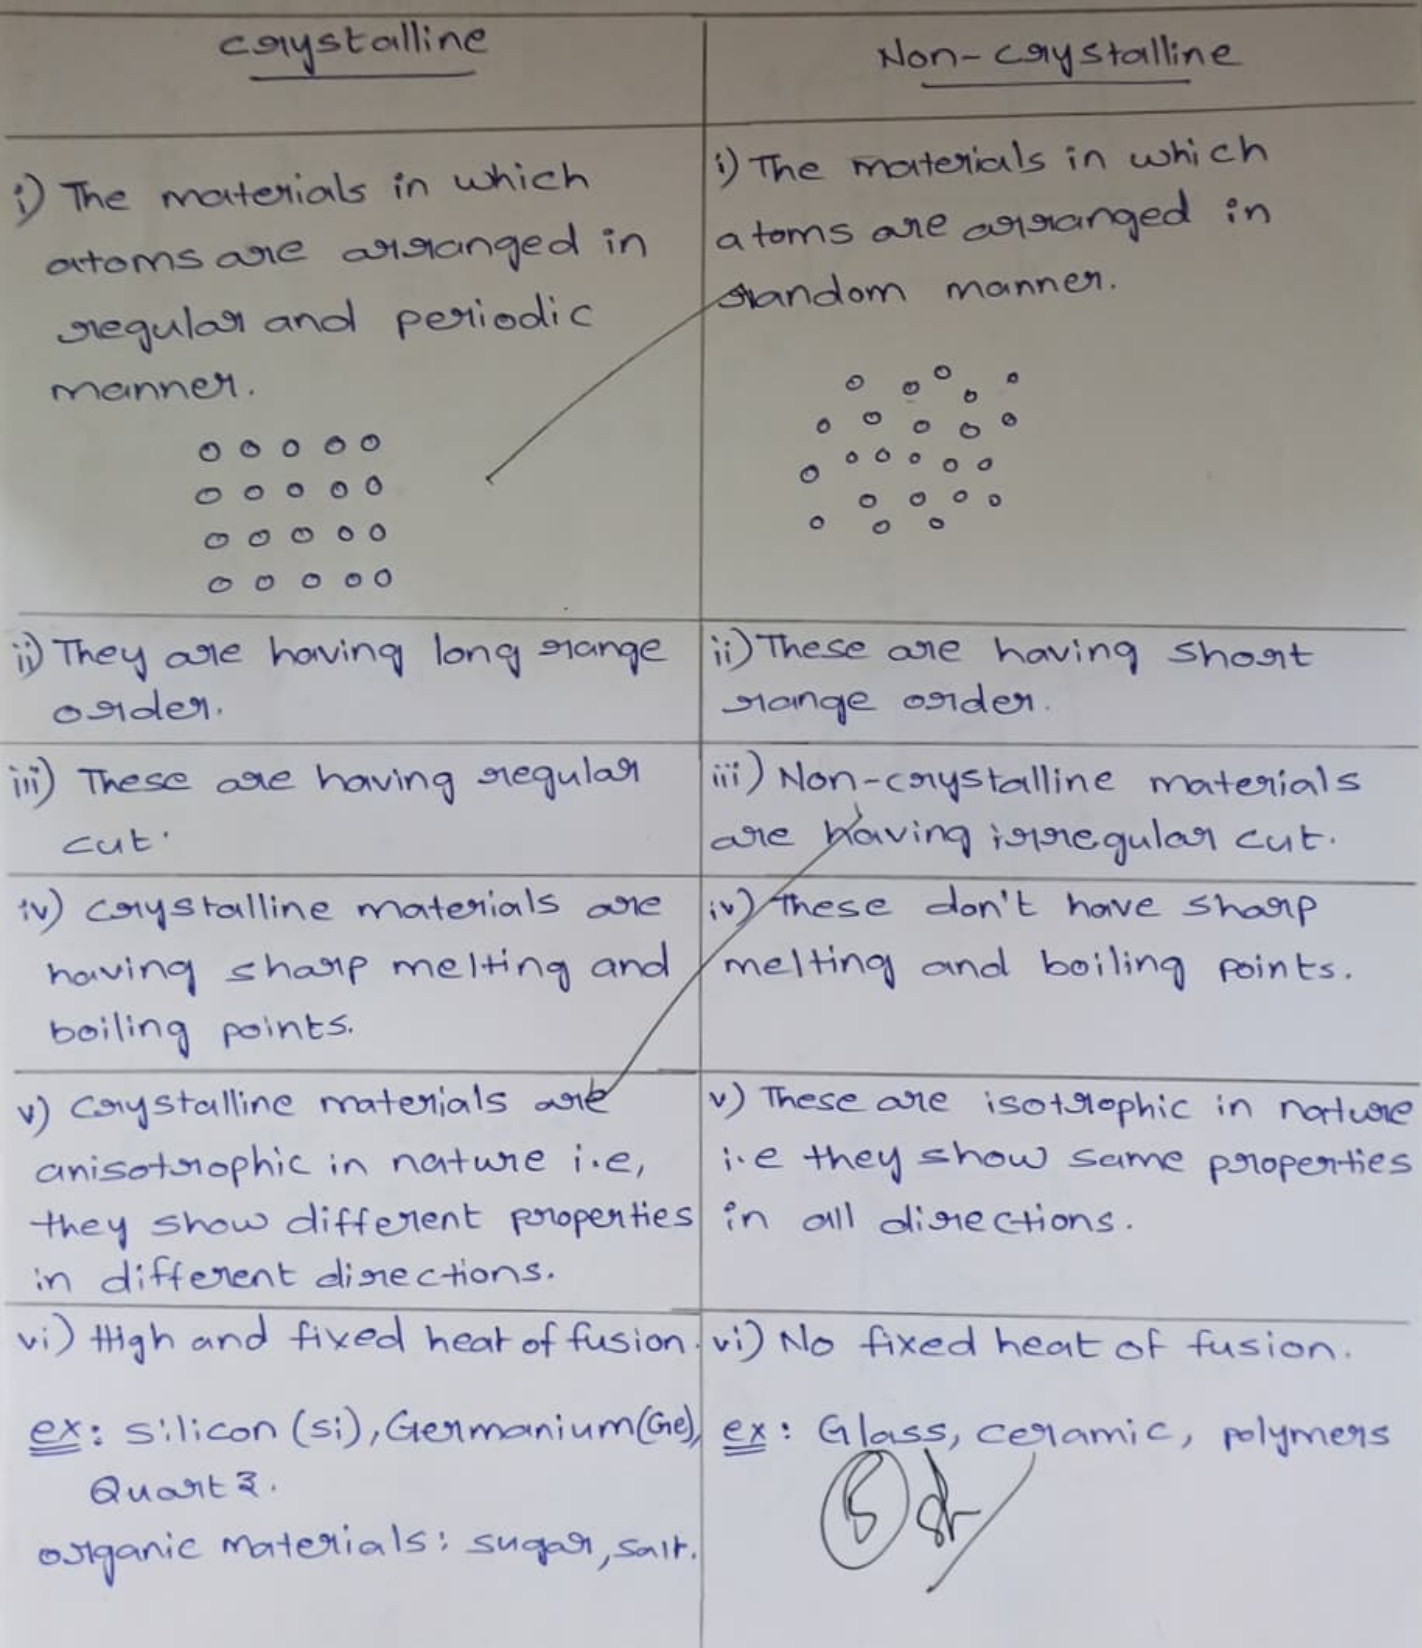 Crystalline
Non-crystalline
i) The materials in which
atoms are arranged in
regular and periodic
manner.
i) The materials in which
atoms are arranged in
random manner.
ii) They are having long range
order.
ii) These are having short
range order.
iii) These are having regular
cut.
iii) Non-crystalline materials
are having irregular cut.
iv) Crystalline materials are
having sharp melting and
boiling points.
iv) These don't have sharp
melting and boiling points.
v) Crystalline materials are
anisotrophic in nature i.e,
they show different properties
in different directions.
v) These are isotrophic in nature
i.e they show same properties
in all directions.
vi) High and fixed heat of fusion.
ex: Silicon (Si), Germanium (Ge),
Quartz.
organic materials: sugar, salt.
vi) No fixed heat of fusion.
ex: Glass, ceramic, polymers
5